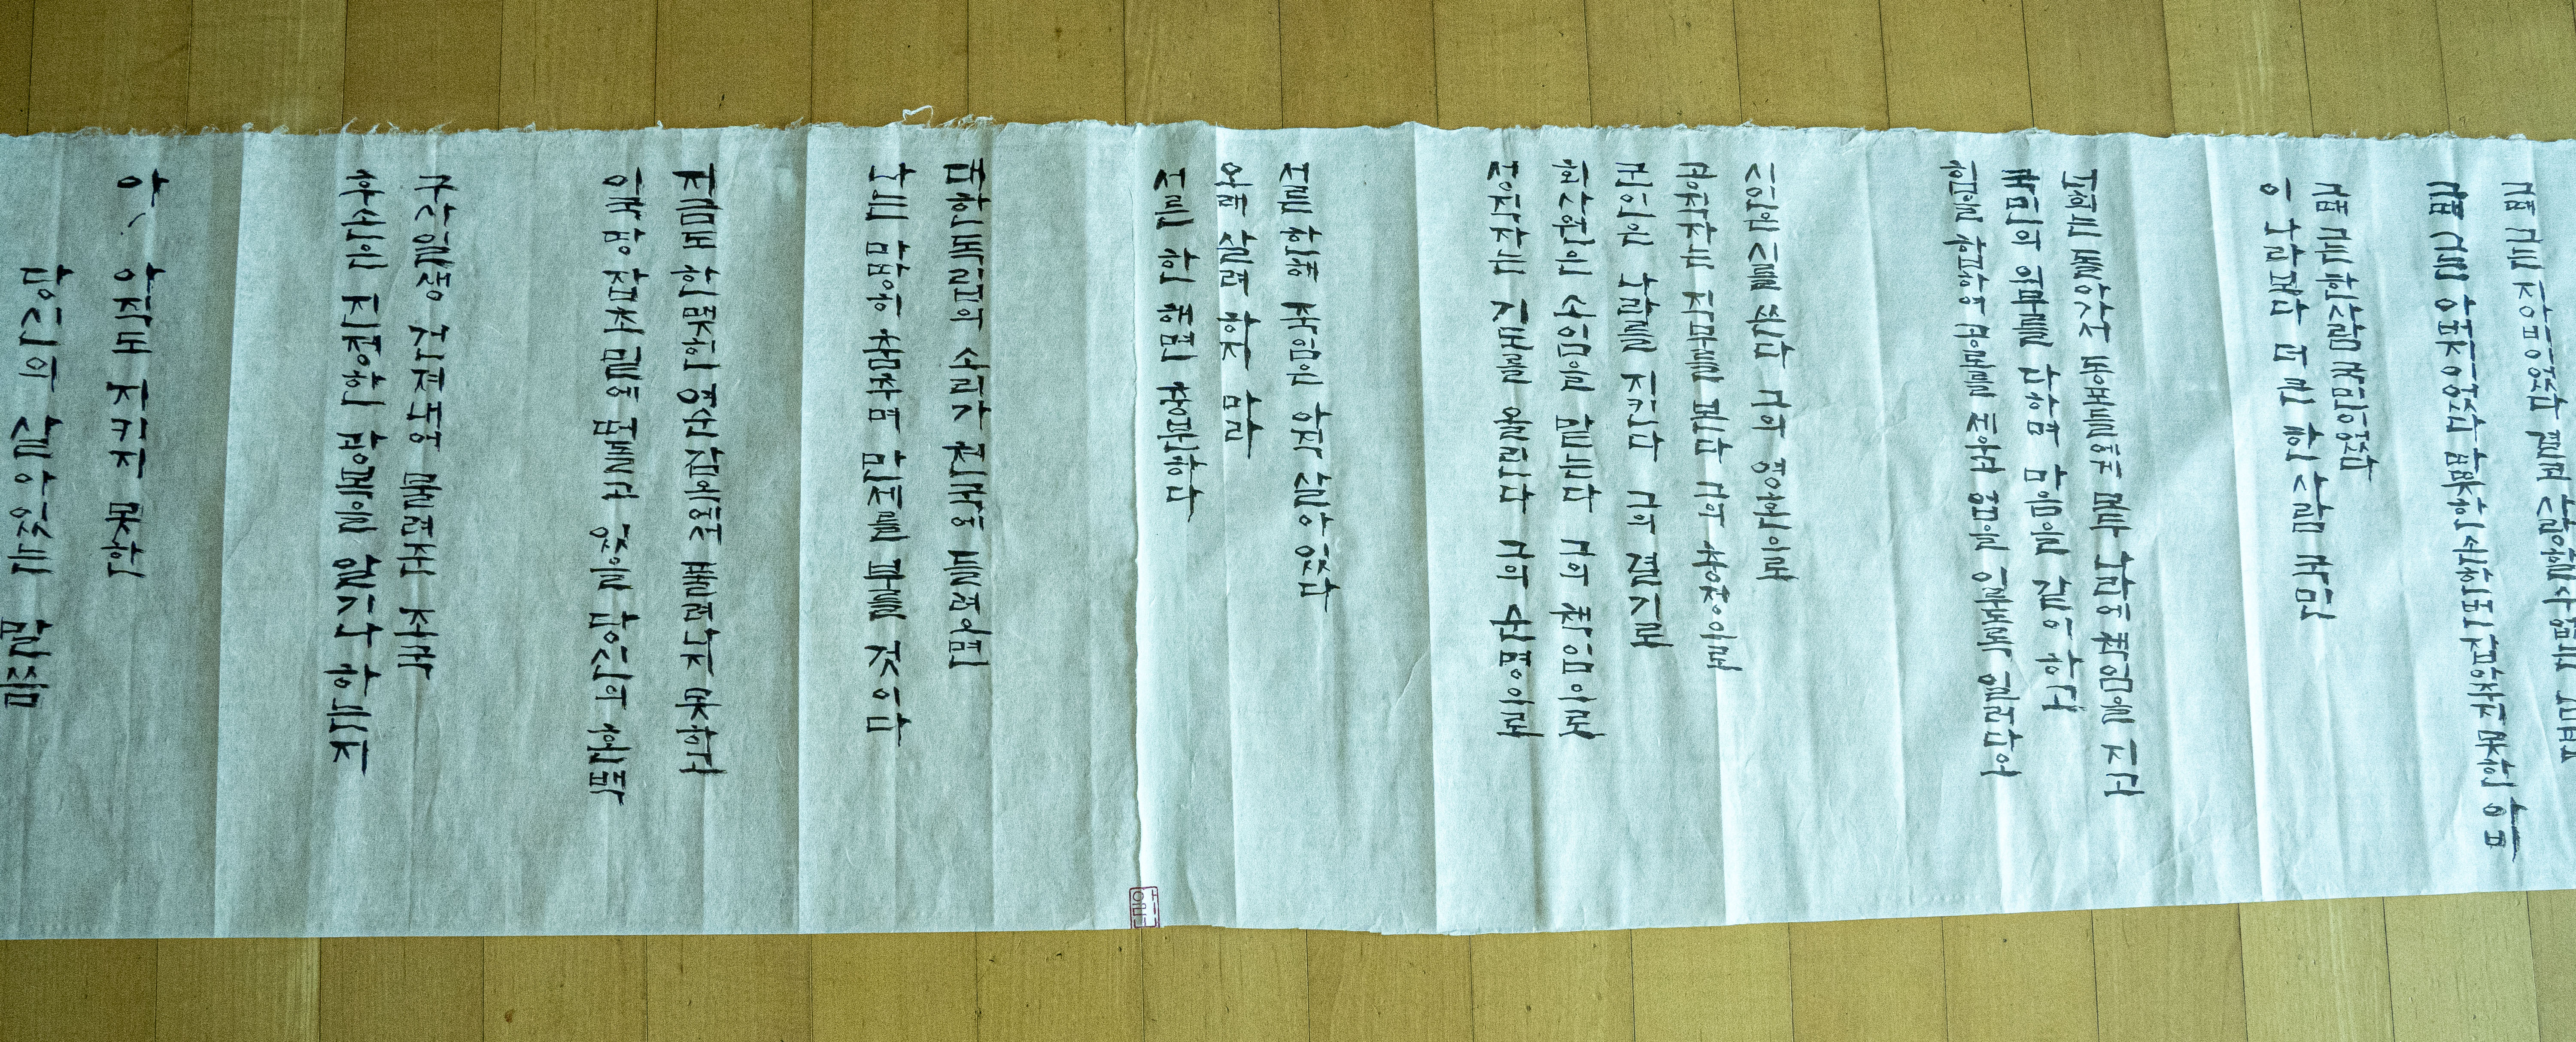 그때 그는 결코 사랑할수 없는
그때 그는 한사람 국민이었다
이 나라보다 더 큰 한 사람 국민
너희는 돌아가서 동포들에게 모두 나라에 책임을 지고
국민의 의무를 다하며 마음을 같이 하고
힘을 합하여 공로를 세우고 업을 이루도록 일러다오
시인은 시를 쓴다 그의 영혼으로
공직자는 직무를 본다 그의 충정으로
군인은 나라를 지킨다 그의 결기로
회사원은 소임을 맡는다 그의 책임으로
성직자는 기도를 올린다 그의 순명으로
서른 한해 죽임은 아직 살아 있다
오래 살려 하지 마라
서른 한 해면 충분하다
대한독립의 소리가 천국에 들려오면
나는 마땅히 춤추며 만세를 부를 것이다
지금도 한 맺힌 여순감옥에서 풀려나지 못하고
이국 땅 잡초 밑에 떠돌고 있을 당신의 혼백
구사일생 건져내어 물려준 조국
후손은 진정한 광복을 알기나 하는지
아, 아직도 지키지 못한
당신의 살아있는 말씀